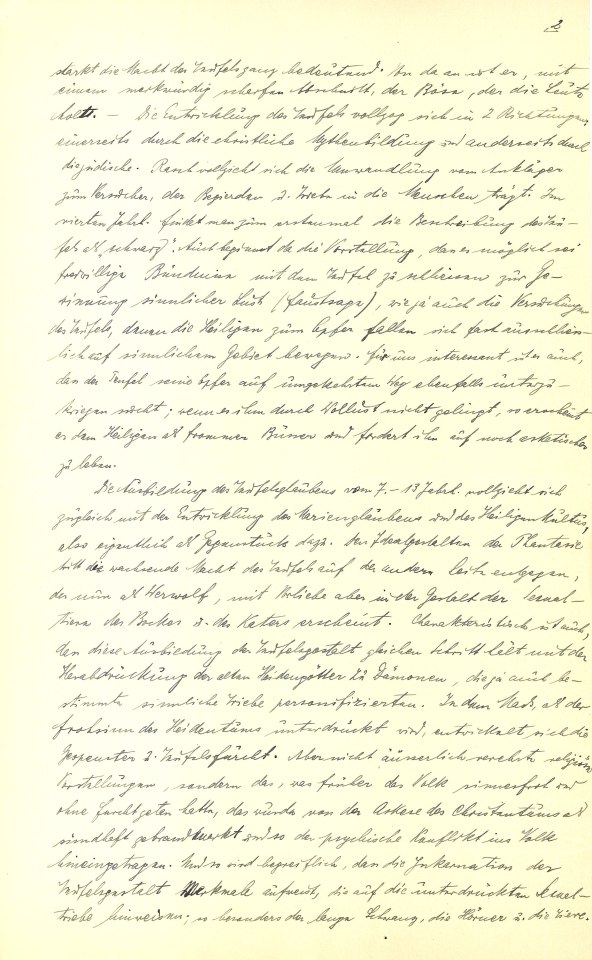 2
stärkt die Macht des Teufelsgang bedeutend. Von da an ist er, mit
einem merkwürdig scharfen Abschnitt, der Böse, der die Leute
holt. — Die Entwicklung des Teufels vollzog sich in 2 Richtungen,
einerseits durch die christliche Mythenbildung und anderseits durch
die jüdische. Rasch vollzieht sich die Umwandlung vom Ankläger
zum Versucher, der Begierden u. Triebe in die Menschen trägt. Im
vierten Jahrh. findet man zum erstenmal die Beschreibung des Teu-
fels als "schwarz". Auch beginnt da die Vorstellung, dass es möglich sei
freiwillige Bündnisse mit dem Teufel zu schliessen zur Ge-
winnung sinnlicher Lust (Faustsage), wie ja auch die Versuchungen
des Teufels, denen die Heiligen zum Opfer fallen sich fast ausschliess-
lich auf sinnlichem Gebiet bewegen. Für uns interessant ist es auch,
dass der Teufel seine Opfer auf umgekehrtem Weg ebenfalls unterzu-
kriegen sucht; wenn es ihm durch Wollust nicht gelingt, so erscheint
er dem Heiligen als frommer Büsser und fordert ihn auf noch asketischer
zu leben.
Die Ausbildung des Teufelsglaubens vom 7.-13 Jahrh. vollzieht sich
zugleich mit der Entwicklung des Marienglaubens und des Heiligenkultus,
also eigentlich als Gegenstück dazu. Den Idealgestalten der Phantasie
tritt die wachsende Macht des Teufels auf der andern Seite entgegen,
der nun als Werwolf, mit Vorliebe aber in der Gestalt der Sexual-
tiere des Bockes u. des Katers erscheint. Charakteristisch ist auch,
dass diese Ausbildung der Teufelsgestalt gleichen Schritt hält mit der
Herabdrückung der alten Heidengötter zu Dämonen, die ja auch be-
stimmte sinnliche Triebe personifizierten. In dem Mass, als der
Frohsinn des Heidentums unterdrückt wird, entwickelt sich die
Gespenster u. Teufelsfurcht. Aber nicht äusserlich verehrte religiöse
Vorstellungen, sondern das, was früher das Volk sinnesfroh und
ohne Furcht getan hatte, das wurde von der Askese des Christentums als
sündhaft gebrandmarkt und so der psychische Konflikt ins Volk
hineingetragen. Und so wird begreiflich, dass die Inkarnation der
Teufelsgestalt Merkmale aufweist, die auf die unterdrückten Sexual-
triebe hinweisen; so besonders der lange Schwanz, die Hörner u. die Tiere.